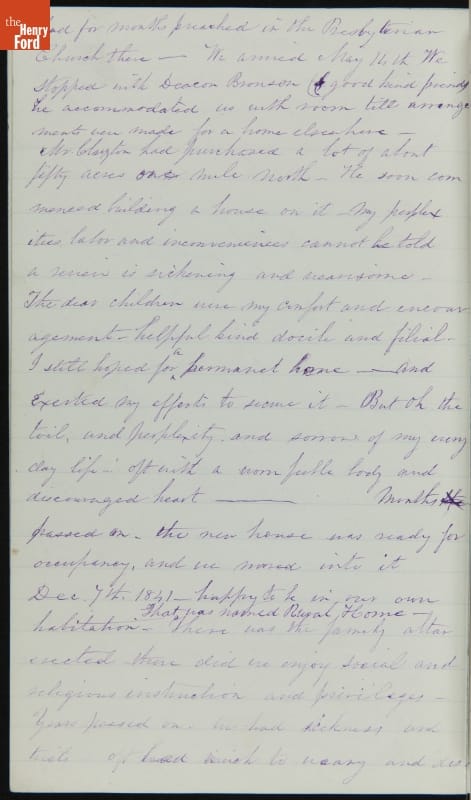 the
Henry
Ford
had for months preached in the Presbyterian
Church there — We arrived May 14th We
stopped with Deacon Bronson (good kind friends
he accommodated us with room till arrange
ments were made for a home elsewhere —
Mr Clayton had purchased a lot of about
fifty acres one mile north — He soon com
menced building a house on it — My perplex
ities labor and inconveniences cannot be told
a review is sickening and wearisome —
The dear children were my comfort and encour
agement — helpful kind docile and filial —
I still hoped for a permanet home — and
Exerted my efforts to secure it — But Oh the
toil, and perplexity and sorrow of my every
day life — oft with a worn feeble body and
discouraged heart — Months
passed on — the new house was ready for
occupancy, and we moved into it
Dec 7th 1841 — happy to be in our own
That was named Rural Home —
habitation — There was the family altar
erected there did we enjoy social and
religious instruction and privileges —
Years passed on we had sickness and
trials oft had much to weary and dis